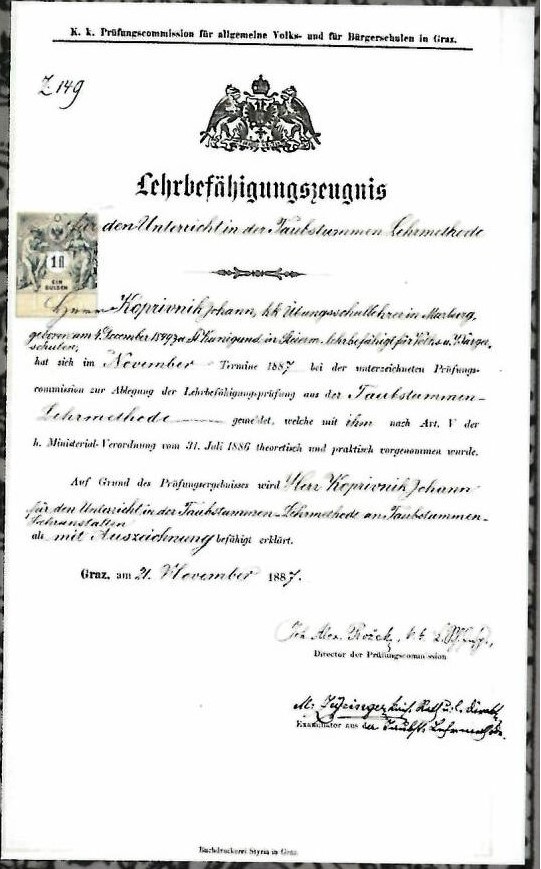 K. k. Prüfungscommission für allgemeine Volks- und für Bürgerschulen in Graz.
Z 149
Lehrbefähigungszeugnis
1 fl
EIN
GULDEN
für den Unterricht in der Taubstummen Lehrmethode
Herr Koprivnik Johann, k.k. Übungsschullehrer in Marburg,
geboren am 4. December 1849 zu St. Kunigund in Steierm. lehrbefähigt für Volks u. Bürger
schulen,
hat sich im November Termine 1887 bei der unterzeichneten Prüfungs-
commission zur Ablegung der Lehrbefähigungsprüfung aus der Taubstummen-
Lehrmethode gemeldet, welche mit ihm nach Art. V der
h. Ministerial-Verordnung vom 31. Juli 1886 theoretisch und praktisch vorgenommen wurde.
Auf Grund des Prüfungsergebnisses wird Herr Koprivnik Johann
für den Unterricht in der Taubstummen-Lehrmethode an Taubstummen-
Lehranstalten
als mit Auszeichnung befähigt erklärt.
Graz, am 21. November 1887.
Alex. Rožek, k.k.
Director der Prüfungscommission
M. kais. Rath u. l. Direct.
Examinator aus der Taubst. Lehrmethode.
Buchdruckerei Styria in Graz.